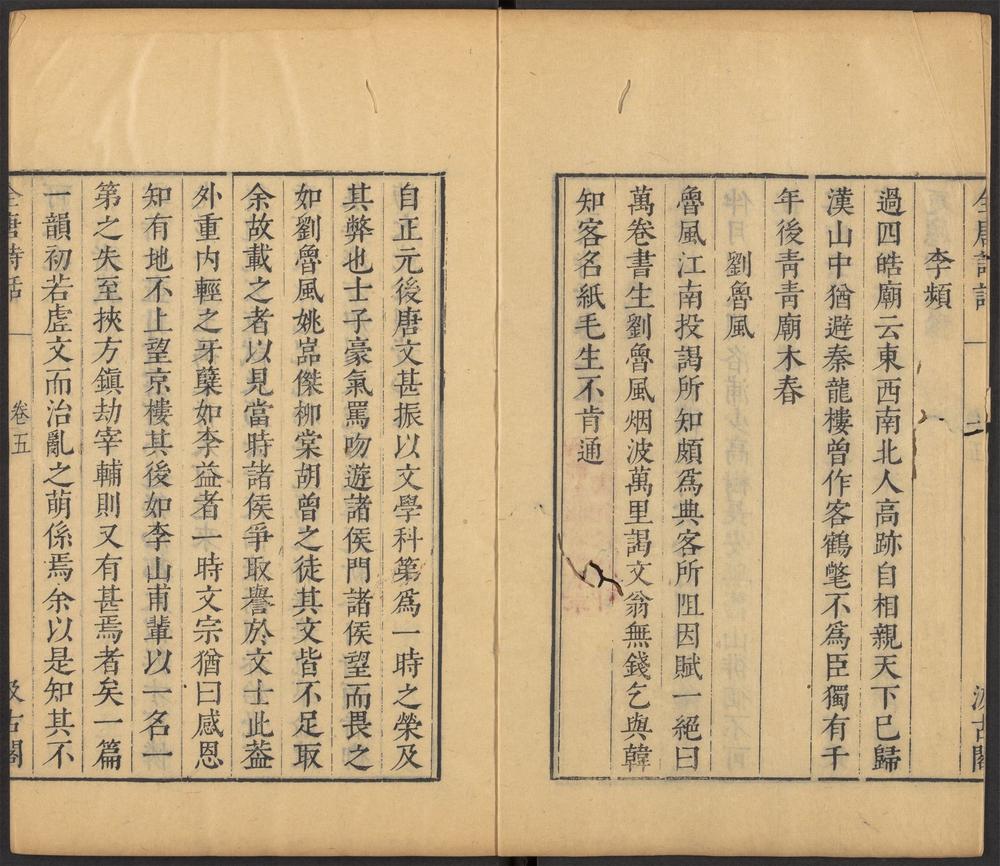 李頻
過四皓廟云東西南北人高跡自相親天下已歸
漢山中猶避秦龍樓曾作客鶴氅不爲臣獨有千
年後青青廟木春
劉魯風
魯風江南投謁所知頗爲典客所阻因賦一絕曰
萬卷書生劉魯風烟波萬里謁文翁無錢乞與韓
知客名紙毛生不肯通
自正元後唐文甚振以文學科第爲一時之榮及
其弊也士子豪氣罵吻遊諸侯門諸侯望而畏之
如劉魯風姚嵓傑柳棠胡曾之徒其文皆不足取
余故載之者以見當時諸侯爭取譽於文士此葢
外重内輕之牙櫱如李益者一時文宗猶曰感恩
知有地不上望京樓其後如李山甫輩以一名一
第之失至挾方鎮劫宰輔則又有甚焉者矣一篇
一韻初若虛文而治亂之萌係焉余以是知其不
全唐詩話
卷五
汲古閣